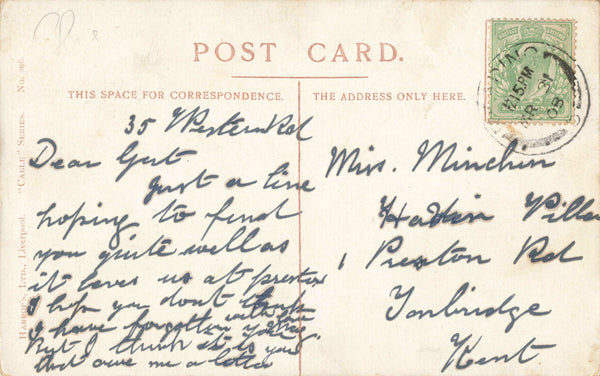 POST CARD.
THIS SPACE FOR CORRESPONDENCE.
THE ADDRESS ONLY HERE.
HARVEY'S, LTD., Liverpool. "CABLE" SERIES. No.
35 Western Rd
Dear Gert
Just a line
hoping to find
you quite well as
it leves us at preston
I hop you dont think
I have forgotton
But I think it is you
that owe me a letter
Miss. Minchin
Villa
1 Preston Rd
Tonbridge
Kent
15PM
21
08